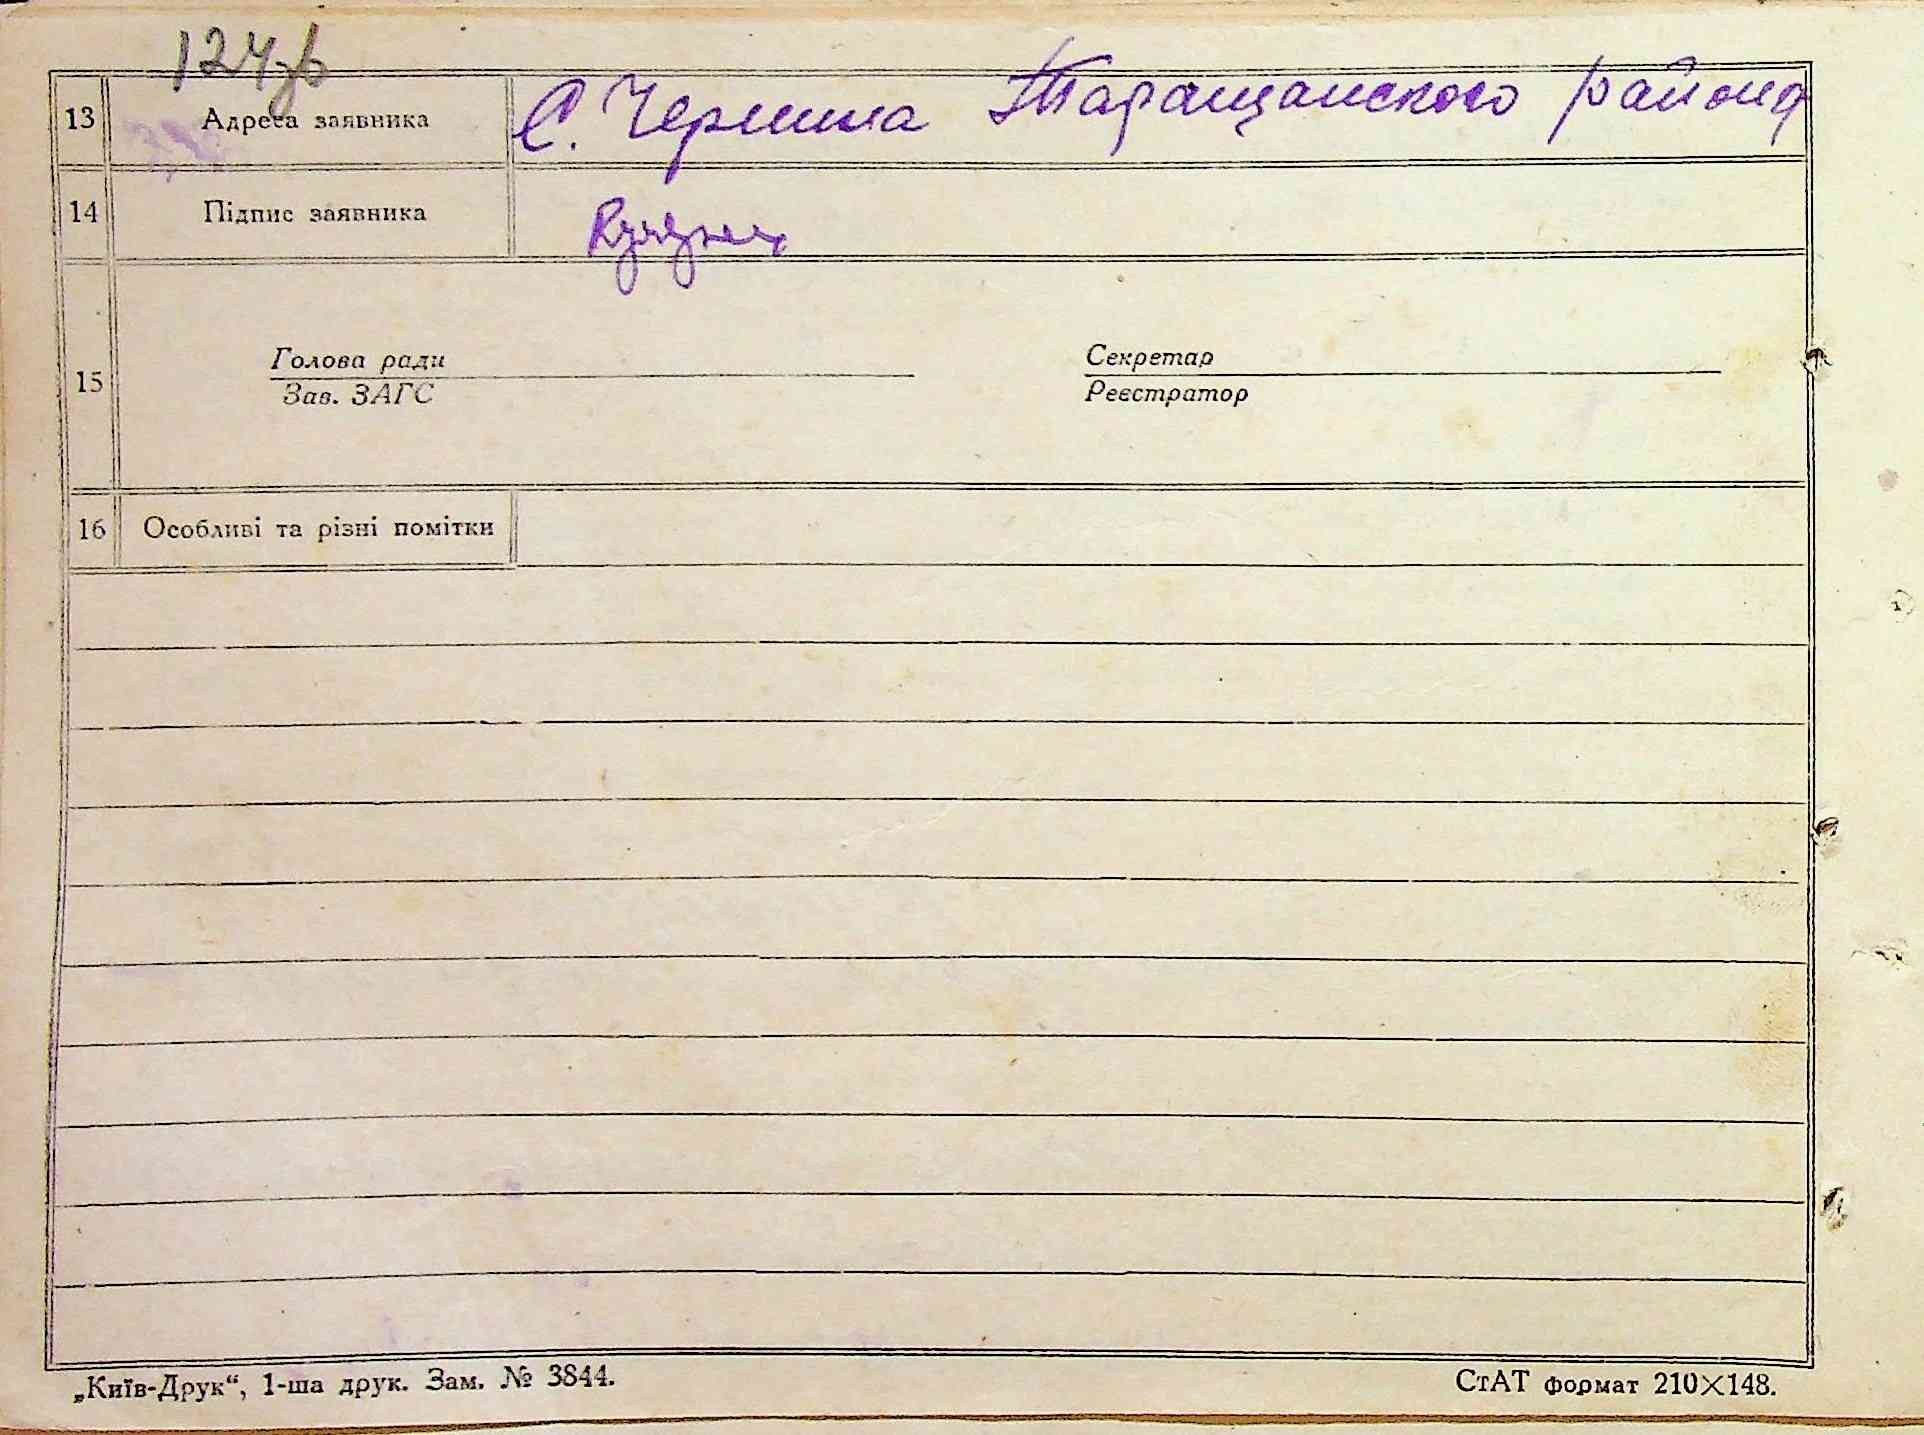 124зв
13 Адреса заявника С. Чермина Таращанского района
14 Підпис заявника
15 Голова ради Секретар
Зав. ЗАГС Реєстратор
16 Особливі та різні помітки
„Київ-Друк“, 1-ша друк. Зам. № 3844. СтАТ формат 210×148.